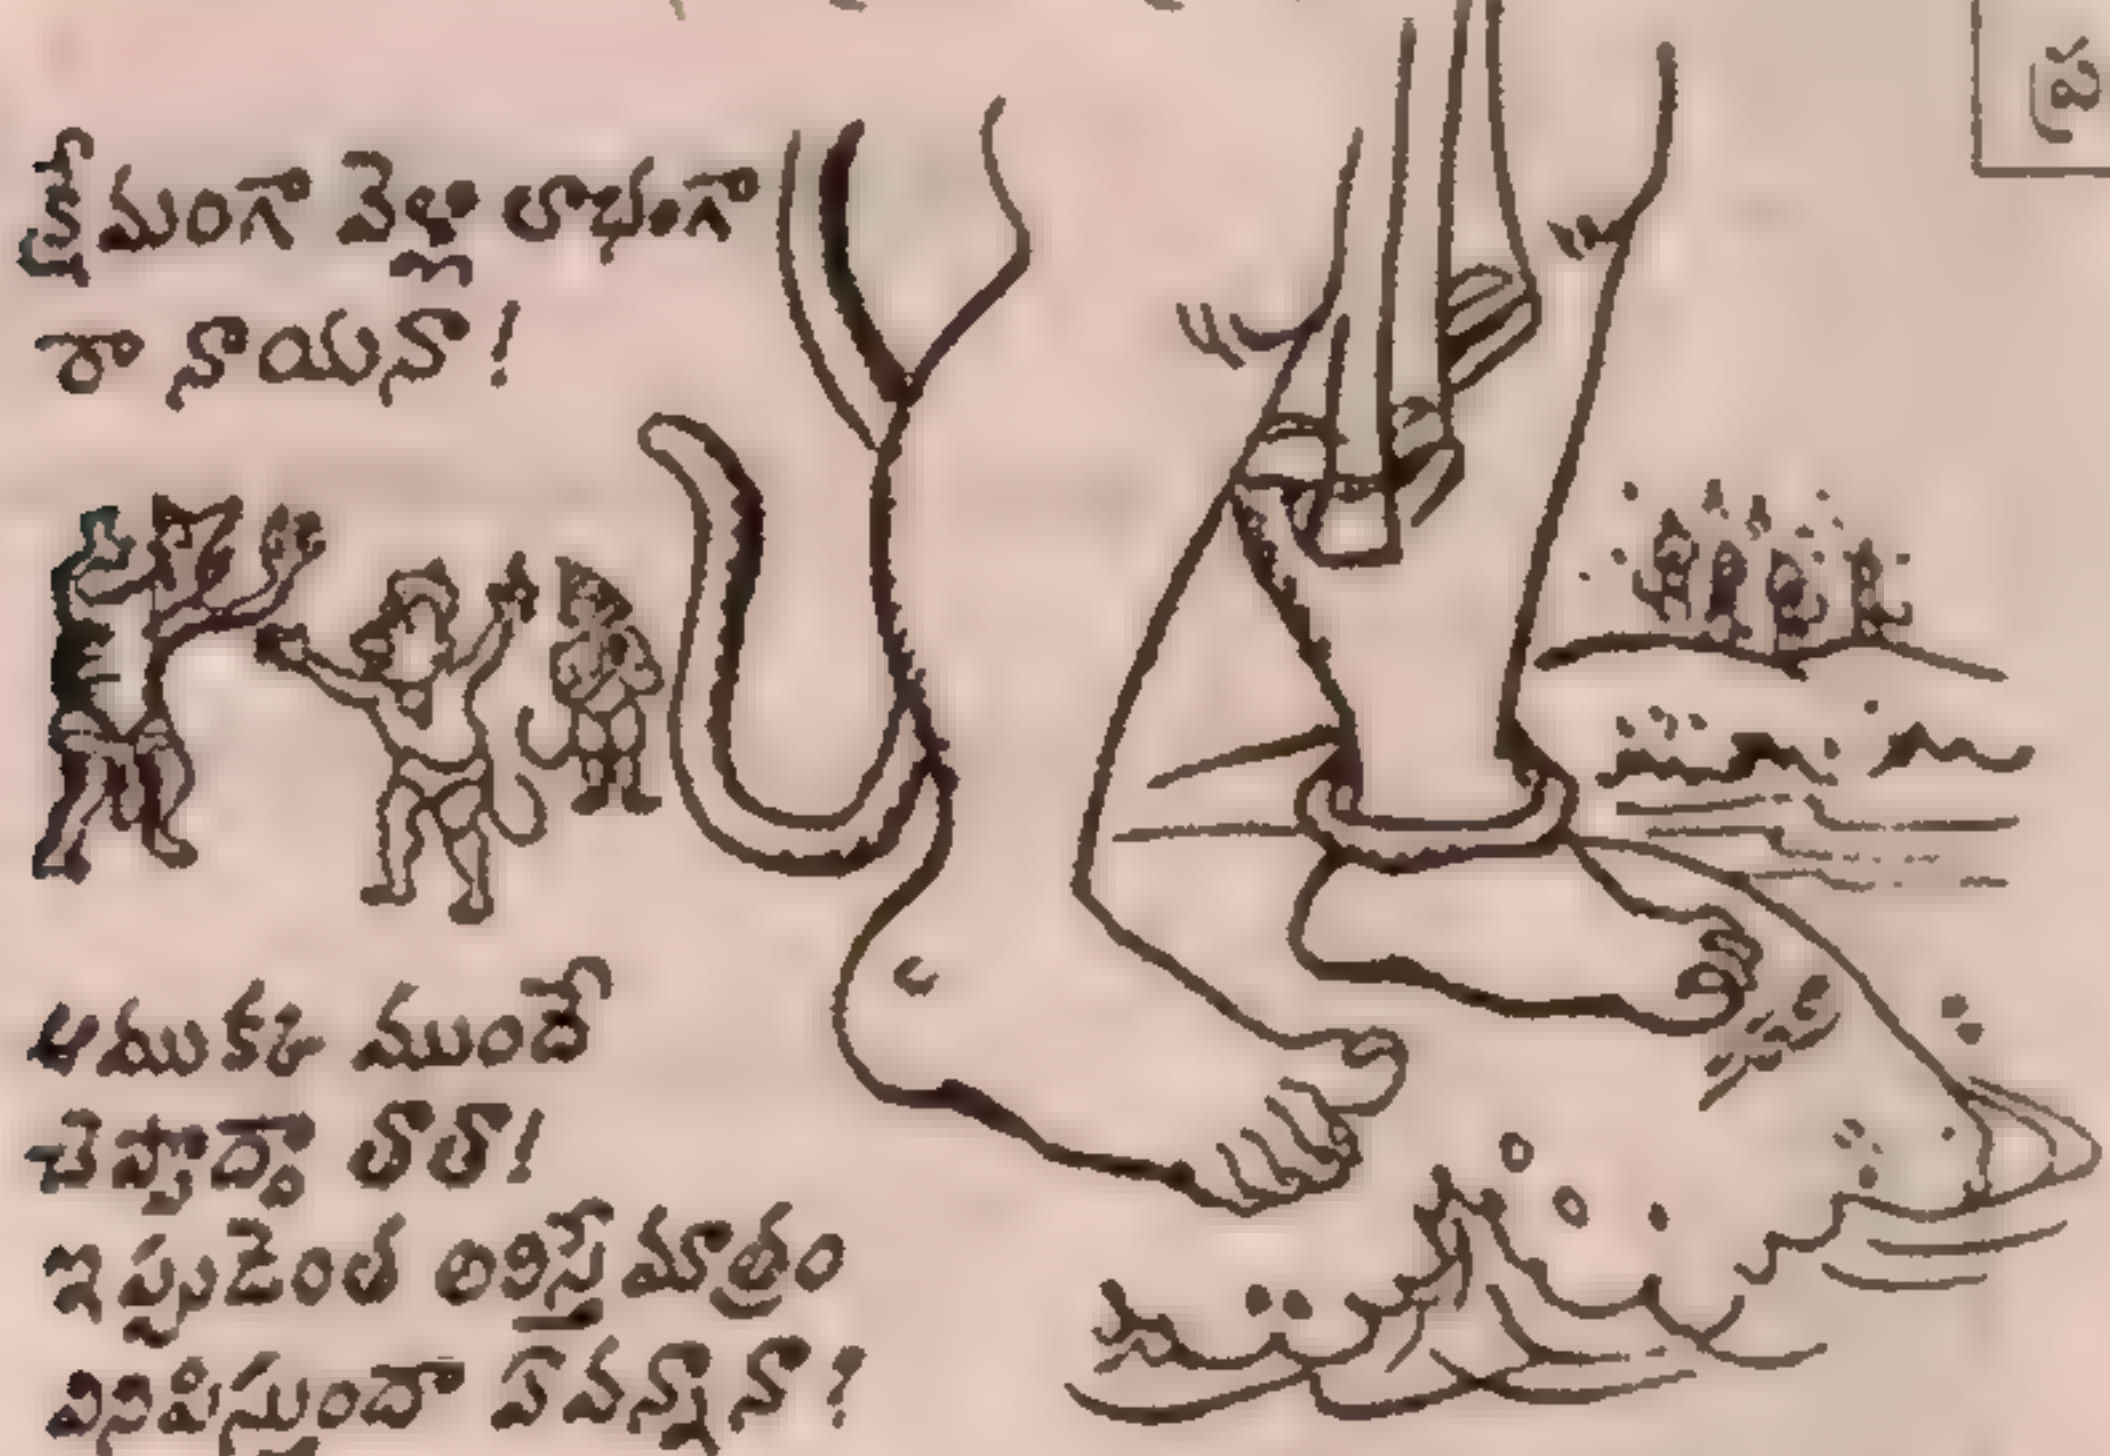 క్షేమంగా వెళ్లా లాభంగా
రా నాయనా!
ఆముకడ ముందే
చెప్పొద్దా తాతా!
ఇప్పుడెంత అరిస్తే మాత్రం
వినిపిస్తుందా ఏవన్నానా?